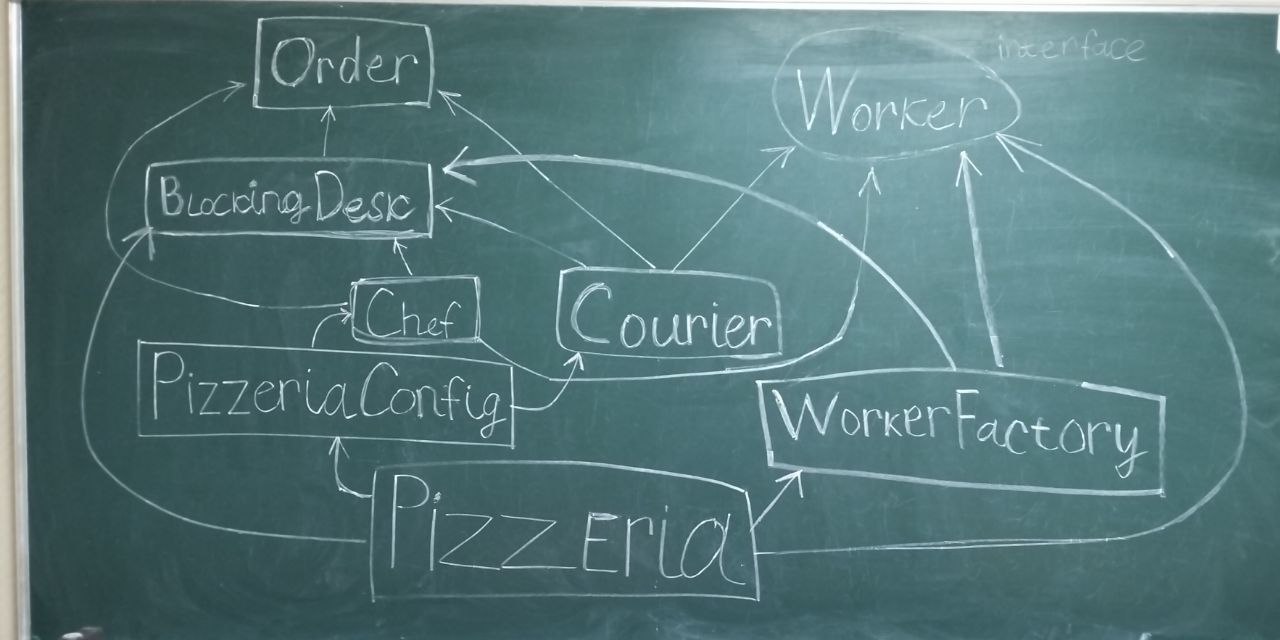 Order
interface
Worker
BlockingDesk
Chef
Courier
PizzeriaConfig
WorkerFactory
Pizzeria